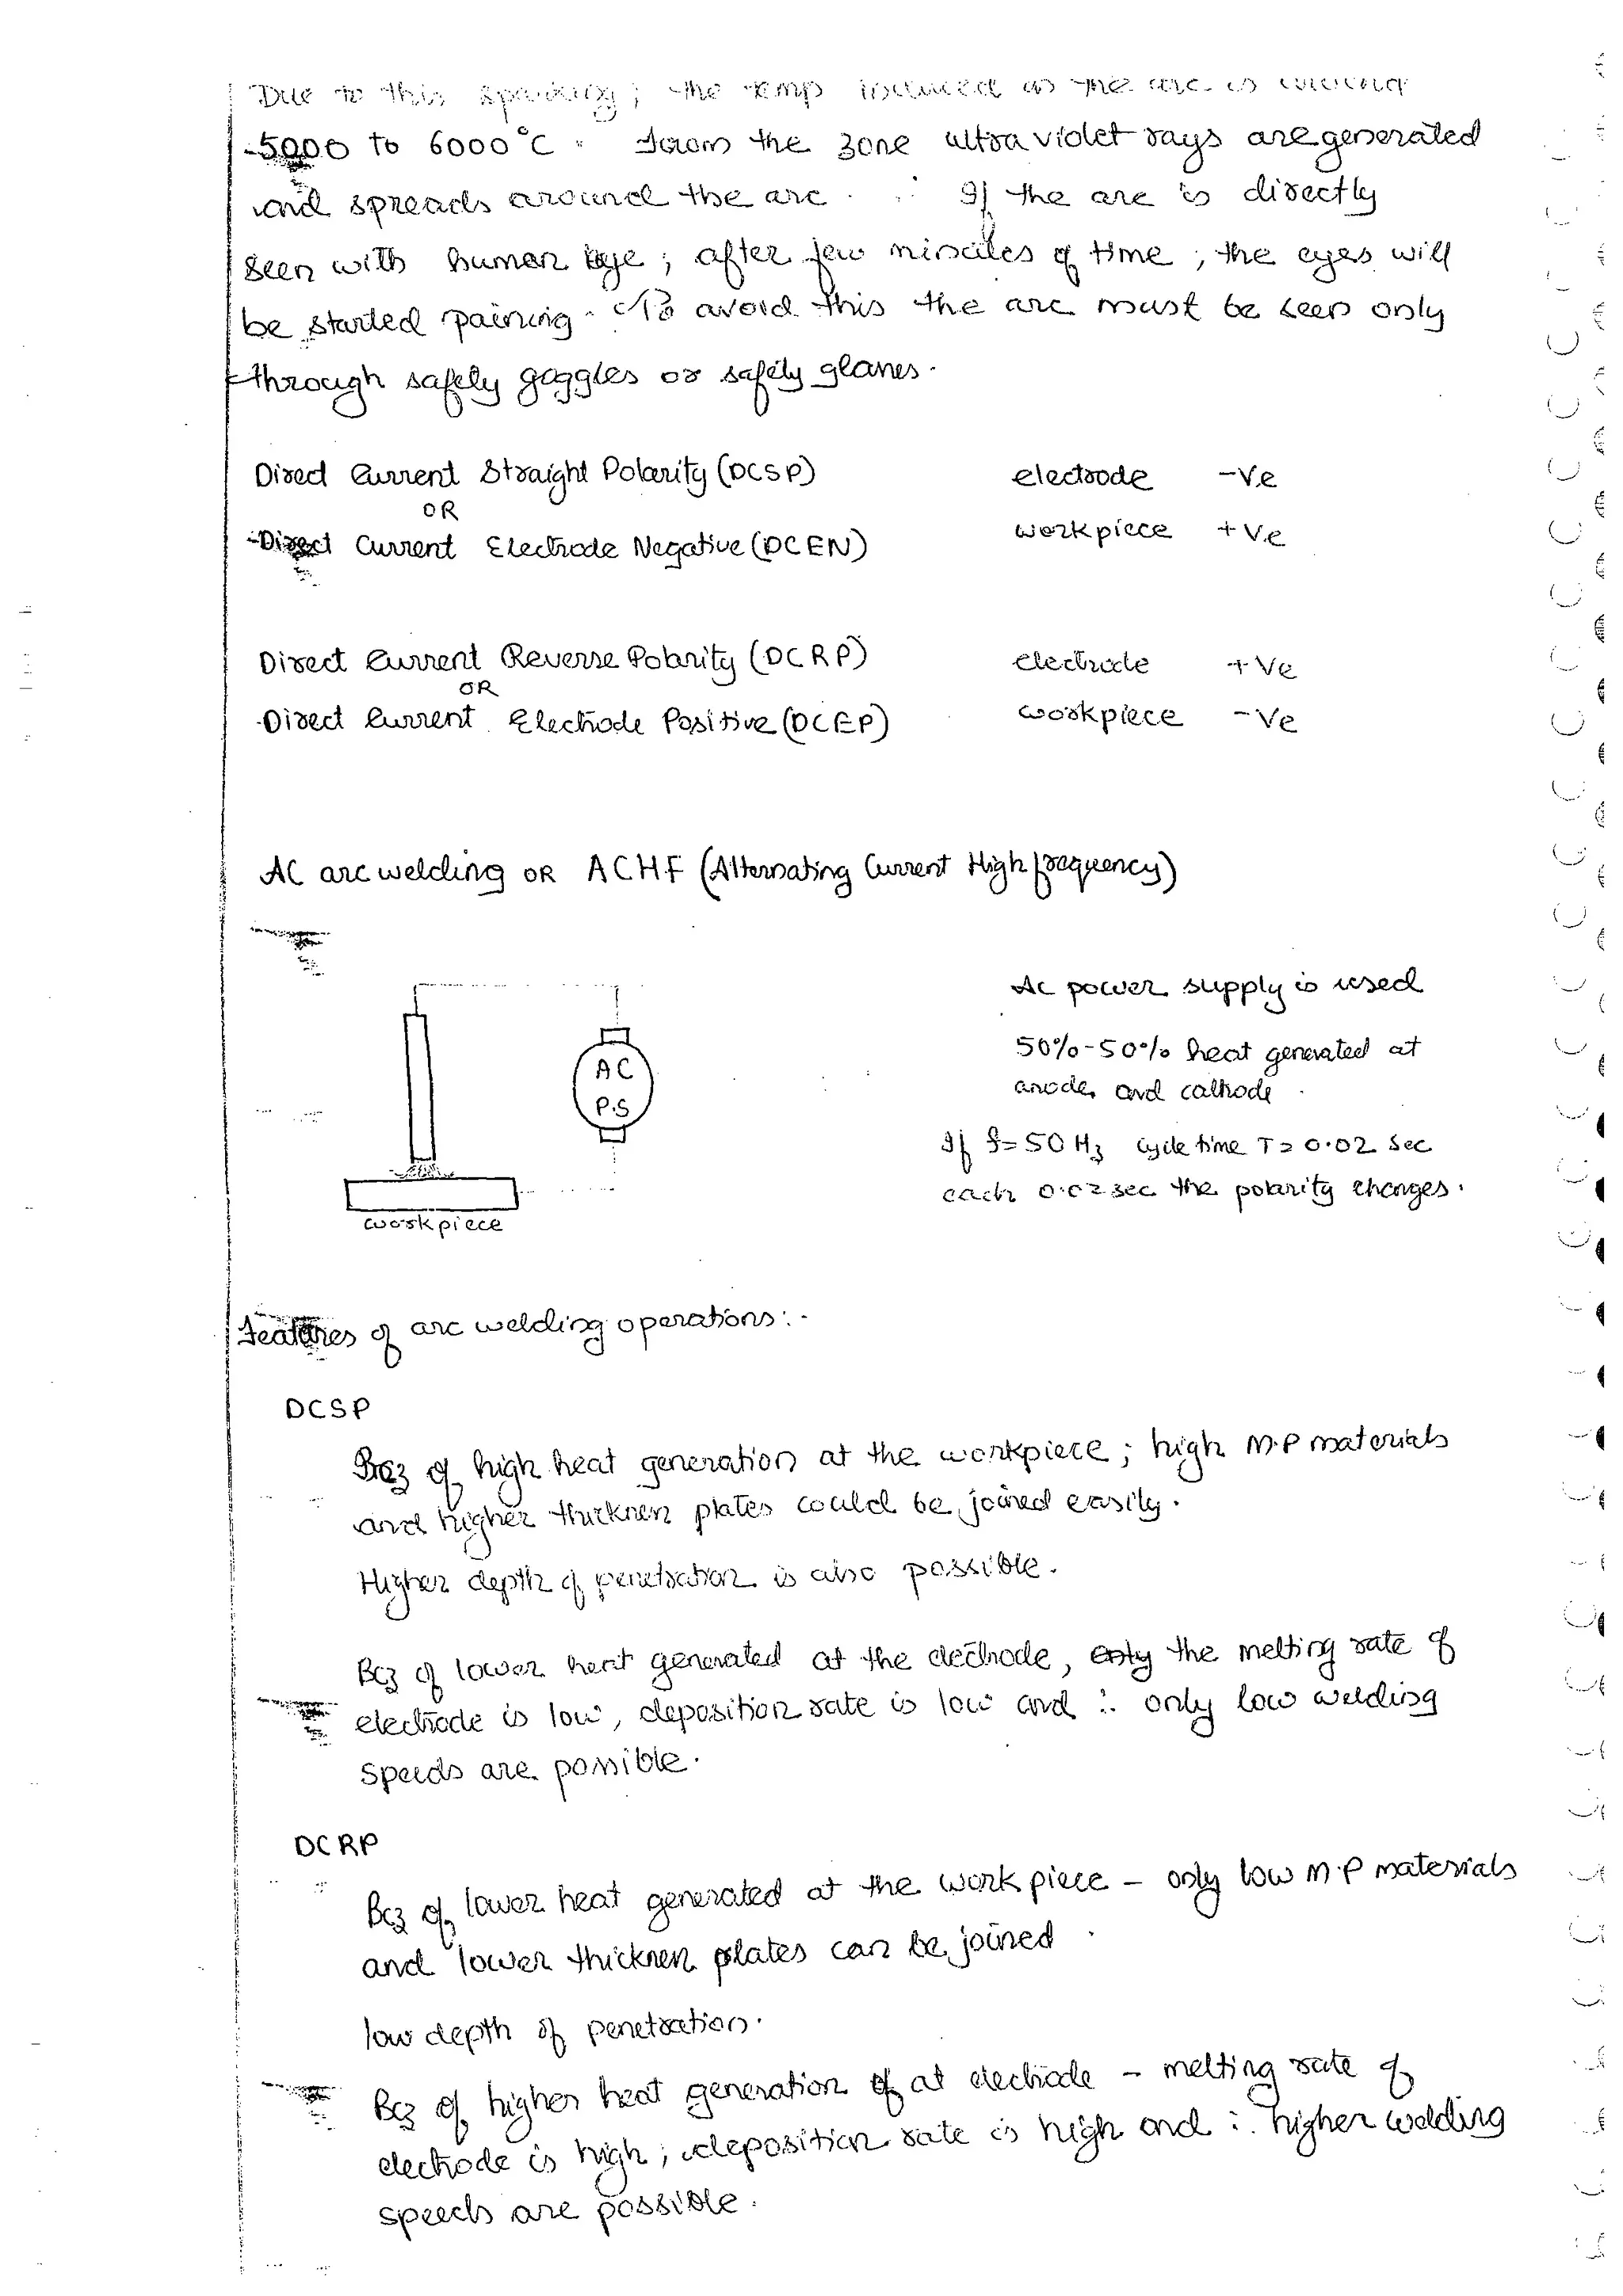 Due to this sparking; the temp induced in the arc is around
5000 to 6000°C. From the zone ultra violet rays are generated
and spreads around the arc. If the arc is directly
seen with human eye; after few minutes of time; the eyes will
be started paining. To avoid this the arc must be seen only
through safety goggles or safety glasses.
Direct Current Straight Polarity (DCSP) electrode -Ve
OR
Direct Current Electrode Negative (DCEN) workpiece +Ve
Direct Current Reverse Polarity (DCRP) electrode +Ve
OR
Direct Current Electrode Positive (DCEP) workpiece -Ve
AC arc welding OR ACHF (Alternating Current High frequency)
AC power supply is used
50%-50% heat generated at
anode and cathode
If f=50 Hz cycle time T = 0.02 sec
each 0.02 sec the polarity changes.
AC
P.S
workpiece
Features of arc welding operations:-
DCSP
Bcz of high heat generation at the workpiece; high M.P materials
and higher thickness plates could be joined easily.
Higher depth of penetration is also possible.
Bcz of lower heat generated at the electrode, only the melting rate of
electrode is low, deposition rate is low and ∴ only low welding
speeds are possible.
DCRP
Bcz of lower heat generated at the work piece - only low M.P materials
and lower thickness plates can be joined
low depth of penetration.
Bcz of higher heat generation of at electrode - melting rate of
electrode is high; deposition rate is high and ∴ higher welding
speeds are possible.